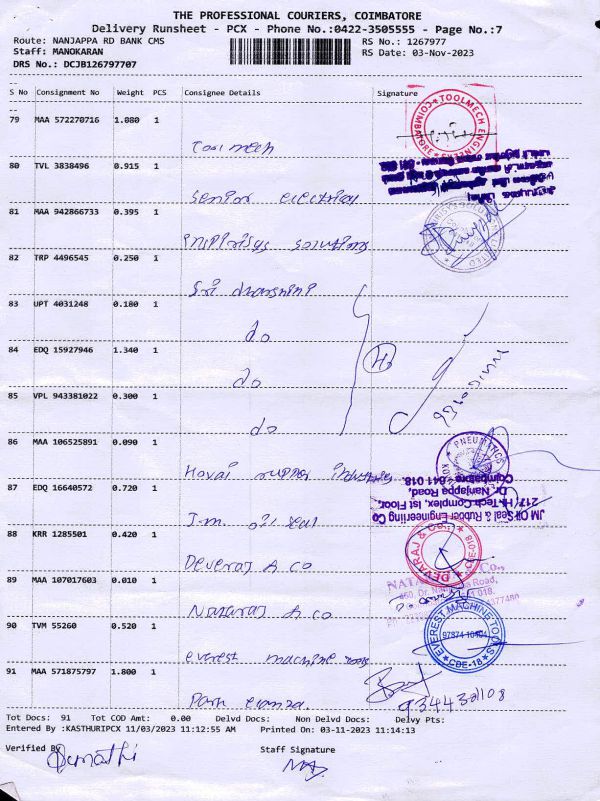 THE PROFESSIONAL COURIERS, COIMBATORE
Delivery Runsheet - PCX - Phone No.:0422-3505555 - Page No.:7
Route: NANJAPPA RD BANK CMS RS No.: 1267977
Staff: MANOKARAN RS Date: 03-Nov-2023
DRS No.: DCJB126797707
S No Consignment No Weight PCS Consignee Details Signature
79 MAA 572270716 1.080 1
Toolmech
TOOLMECH ENGINEERS COIMBATORE
80 TVL 3838496 0.915 1
Senior electrical
81 MAA 942866733 0.395 1
solutions
82 TRP 4496545 0.250 1
Sri dharshini
83 UPT 4031248 0.180 1
do
84 EDQ 15927946 1.340 1
do
85 VPL 943381022 0.300 1
do
86 MAA 106525891 0.090 1
Kovai rubber industries
PNEUMATICS
87 EDQ 16640572 0.720 1
J.m. oil seal
JM Oil Seal & Rubber Engineering Co
217, Hi-Tech Complex, Ist Floor,
Dr. Nanjappa Road,
Coimbatore - 641 018.
88 KRR 1285501 0.420 1
Devaraj & co
DEVARAJ & Co.
89 MAA 107017603 0.010 1
Nataraj & co
90 TVM 55260 0.520 1
everest machine tools
EVEREST MACHINE TOOLS
97874 10404
CBE-18
91 MAA 571875797 1.800 1
Park
934432108
Tot Docs: 91 Tot COD Amt: 0.00 Delvd Docs: Non Delvd Docs: Delvy Pts:
Entered By :KASTHURIPCX 11/03/2023 11:12:55 AM Printed On: 03-11-2023 11:14:13
Verified By Staff Signature